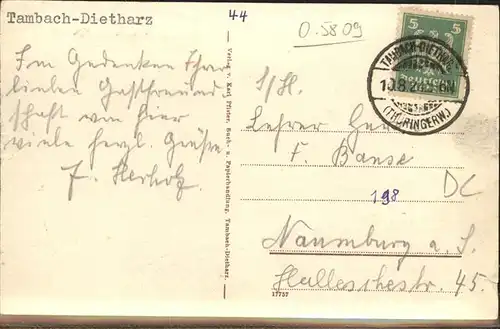 Tambach-Dietharz
44
0.5809
Im Gedenken Ihrer
lieben Gastfreund-
schaft von hier
viele herzl. Grüße
F. Herholz
Verlag v. Karl Pfister, Buch- u. Papierhandlung, Tambach-Dietharz.
5 5
TAMBACH-DIETHARZ
10.8.26
(THÜRINGERW.)
S/Hl.
Lehrer Herr
F. Banse
198
DC
Naumburg a. S.
Hallesschestr. 45.
17757